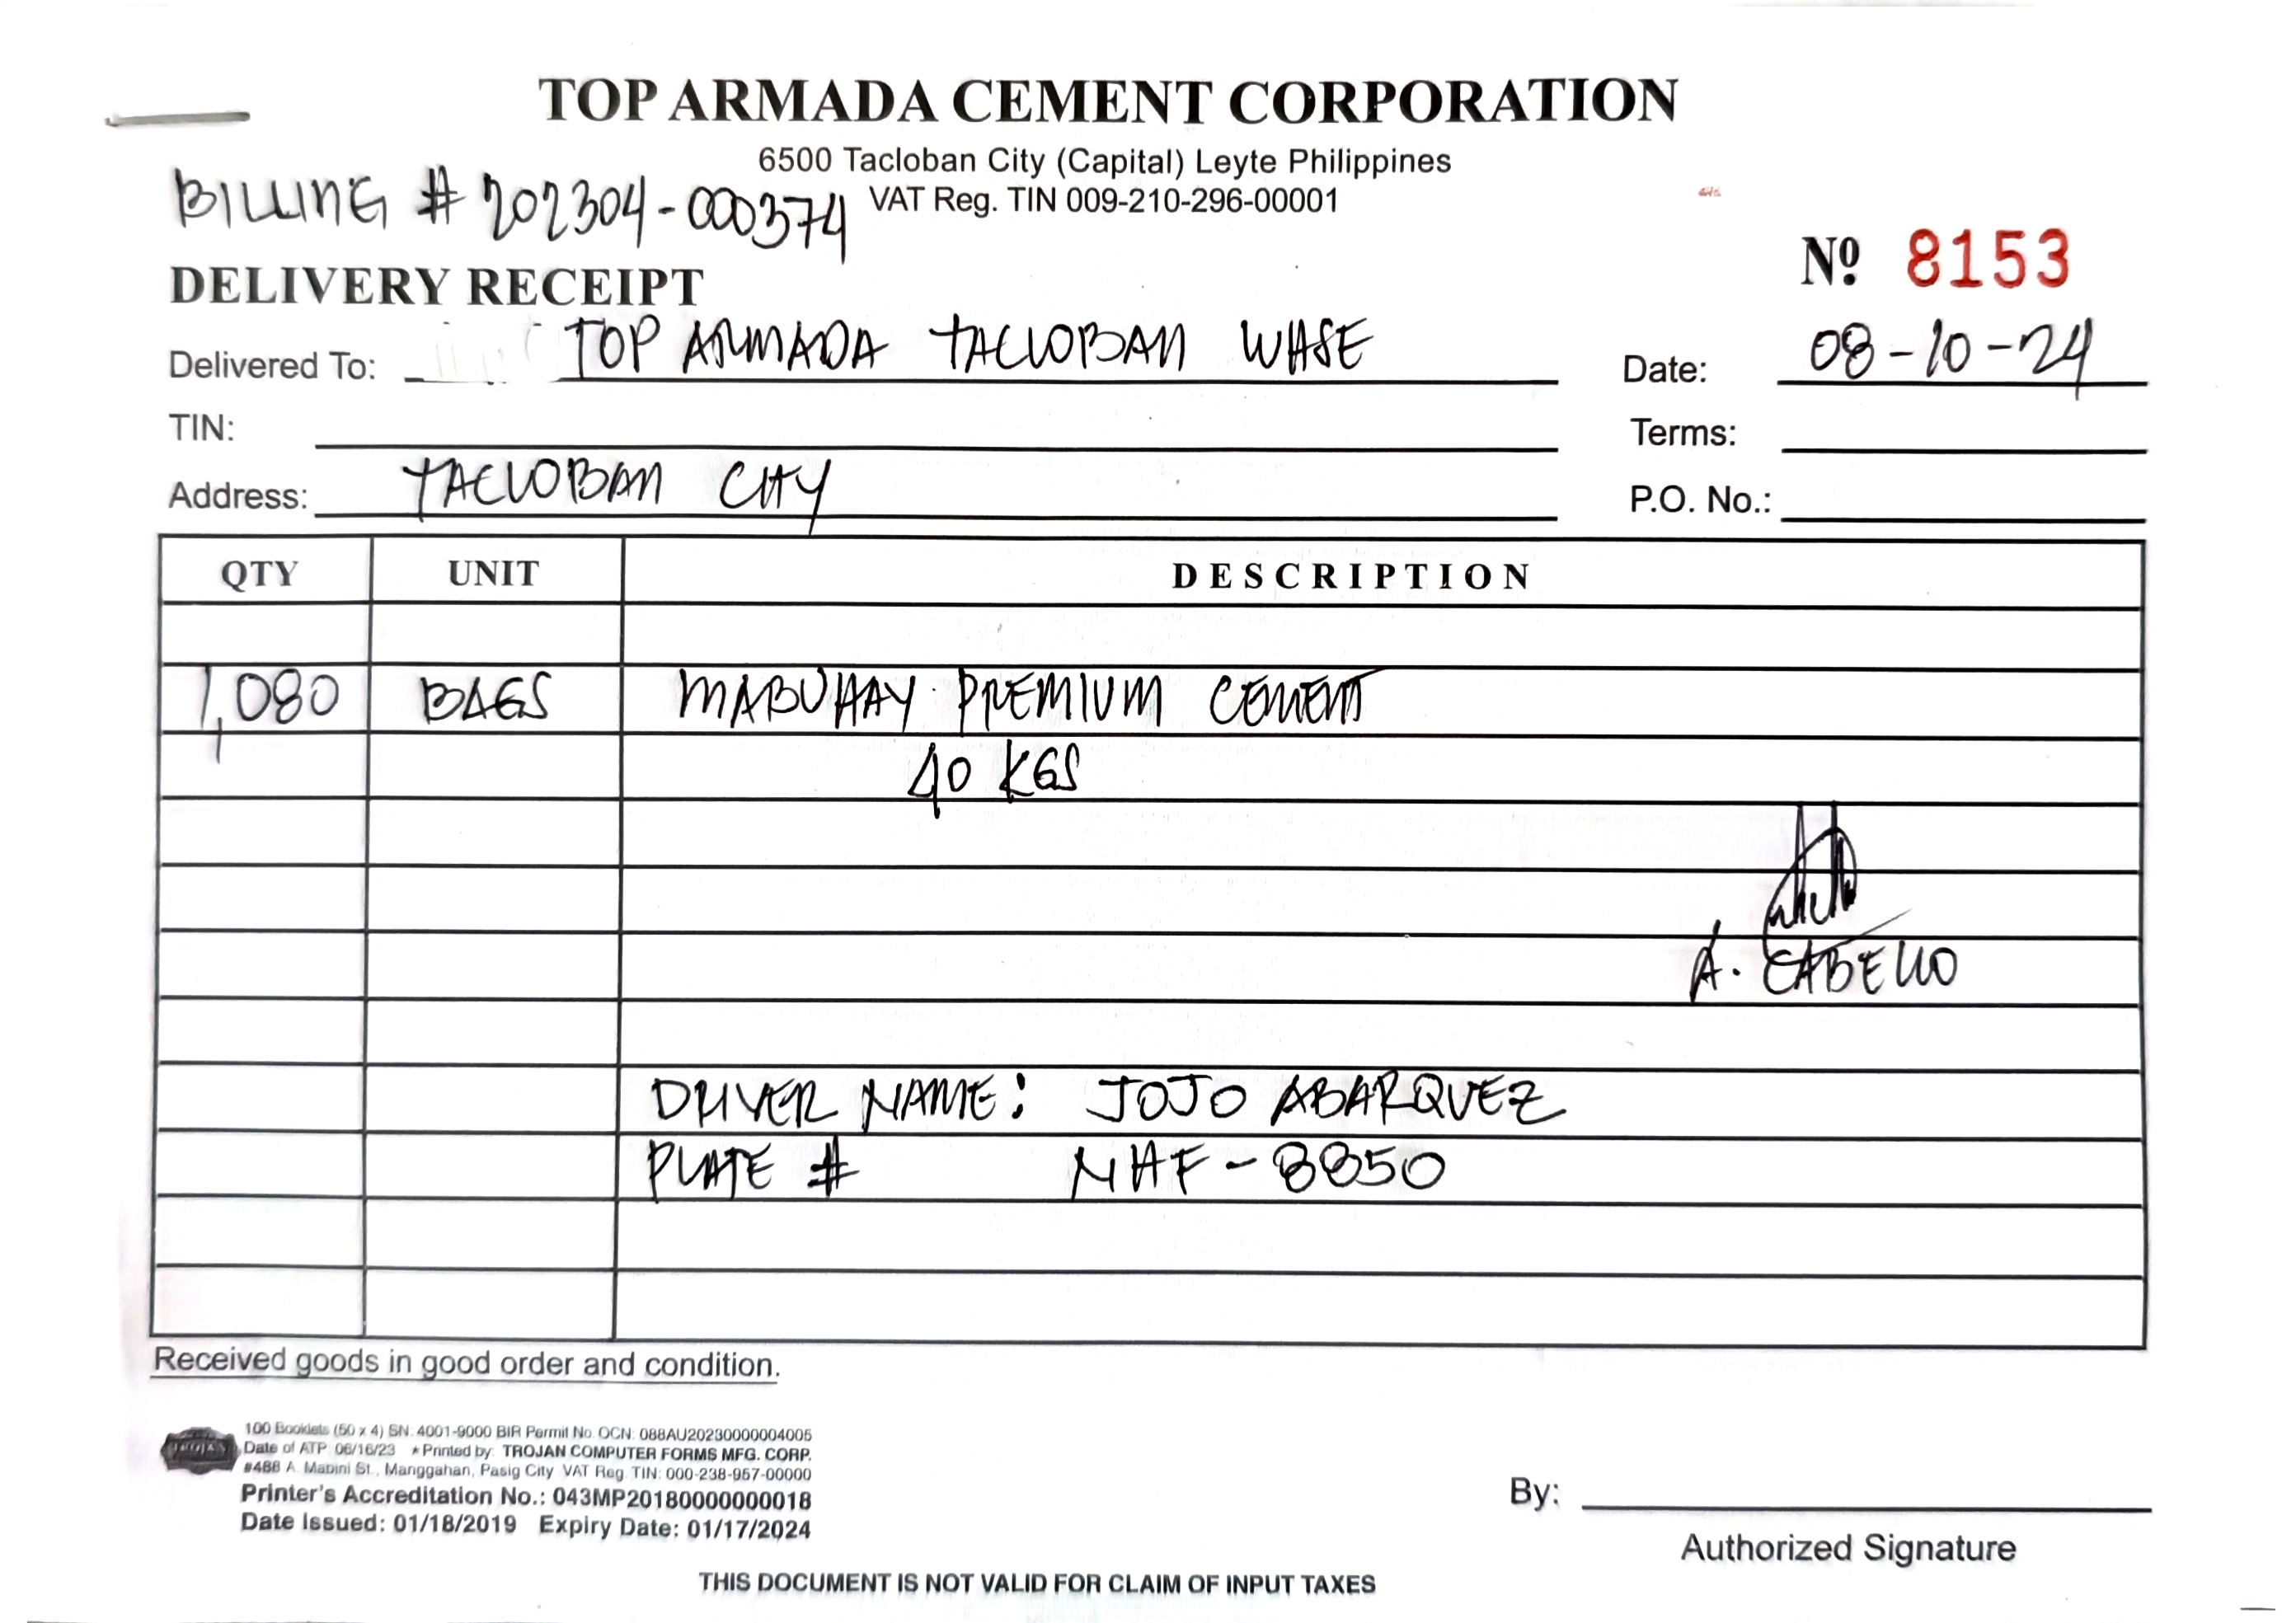 TOP ARMADA CEMENT CORPORATION
6500 Tacloban City (Capital) Leyte Philippines
VAT Reg. TIN 009-210-296-00001
BILLING # 202304-000374
DELIVERY RECEIPT
Nº 8153
Delivered To: TOP ARMADA TACLOBAN WHSE
Date: 08-10-24
TIN:
Terms:
Address: TACLOBAN CITY
P.O. No.:
QTY UNIT DESCRIPTION
1,080 BAGS MABUHAY PREMIUM CEMENT
40 KGS
A. CABELLO
DRIVER NAME: JOJO ABARQUEZ
PLATE # NHF-8850
Received goods in good order and condition.
100 Booklets (50 x 4) SN: 4001-9000 BIR Permit No. OCN: 088AU20230000004005
Date of ATP: 06/16/23 * Printed by: TROJAN COMPUTER FORMS MFG. CORP.
#488 A. Mabini St., Manggahan, Pasig City VAT Reg. TIN: 000-238-957-00000
Printer's Accreditation No.: 043MP20180000000018
Date Issued: 01/18/2019 Expiry Date: 01/17/2024
TROJAN
By:
Authorized Signature
THIS DOCUMENT IS NOT VALID FOR CLAIM OF INPUT TAXES